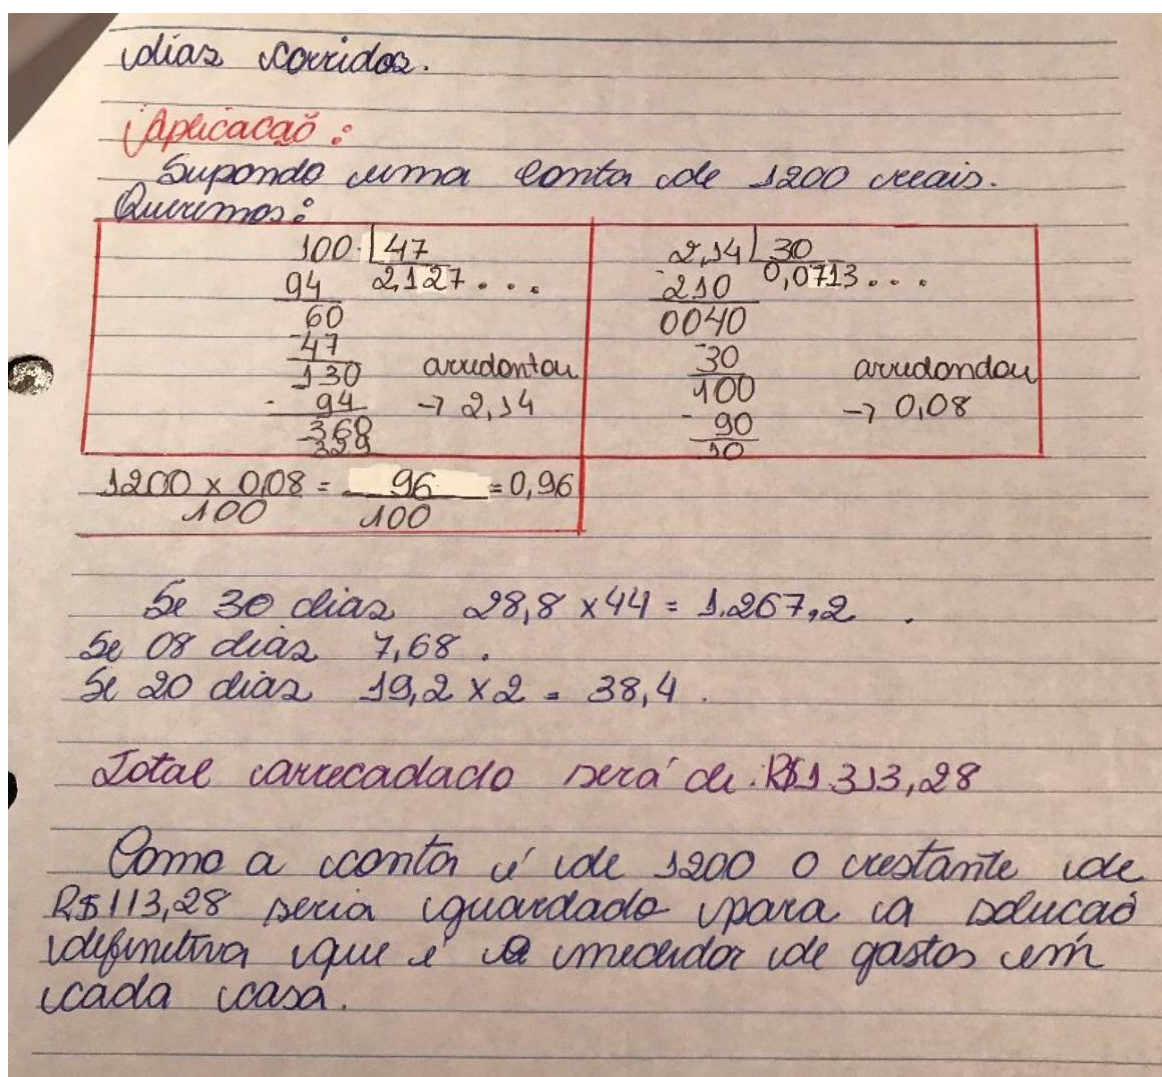 dias corridos.
Aplicacaõ:
Supondo uma conta de 1200 reais.
Queremos:
100 47
94 2,127...
60
-47
130 arredontou
- 94 → 2,14
368
329
2,14 30
-210 0,0713...
0040
-30
100 arredondou
- 90 → 0,08
10
1200 x 0,08 = 96 = 0,96
100 100
Se 30 dias 28,8 x 44 = 1.267,2.
Se 08 dias 7,68.
Se 20 dias 19,2 x 2 = 38,4.
Total arrecadado será de R$1.313,28
Como a conta é de 1200 o restante de
R$113,28 seria guardado para a solucaõ
definitiva que é o medidor de gastos em
cada casa.